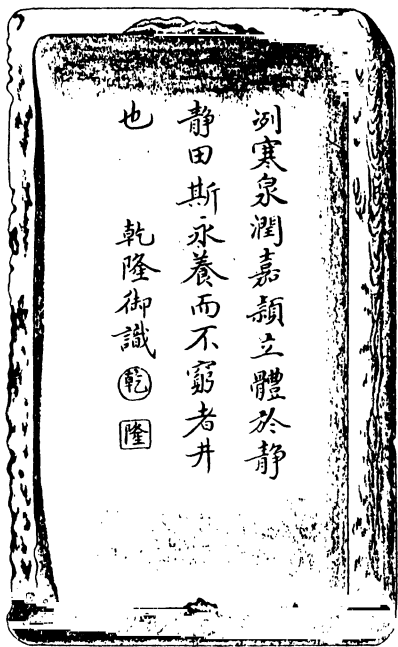 冽寒泉潤嘉穎立體於静
静田斯永養而不窮者井
也　乾隆御識 乾 隆